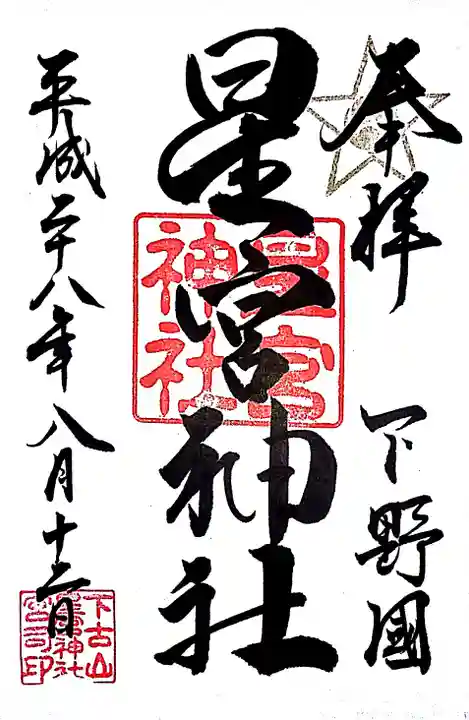 奉拝
下野國
星宮神社
星宮
神社
平成二十八年八月十二日
下古山
星宮神社
宮司印